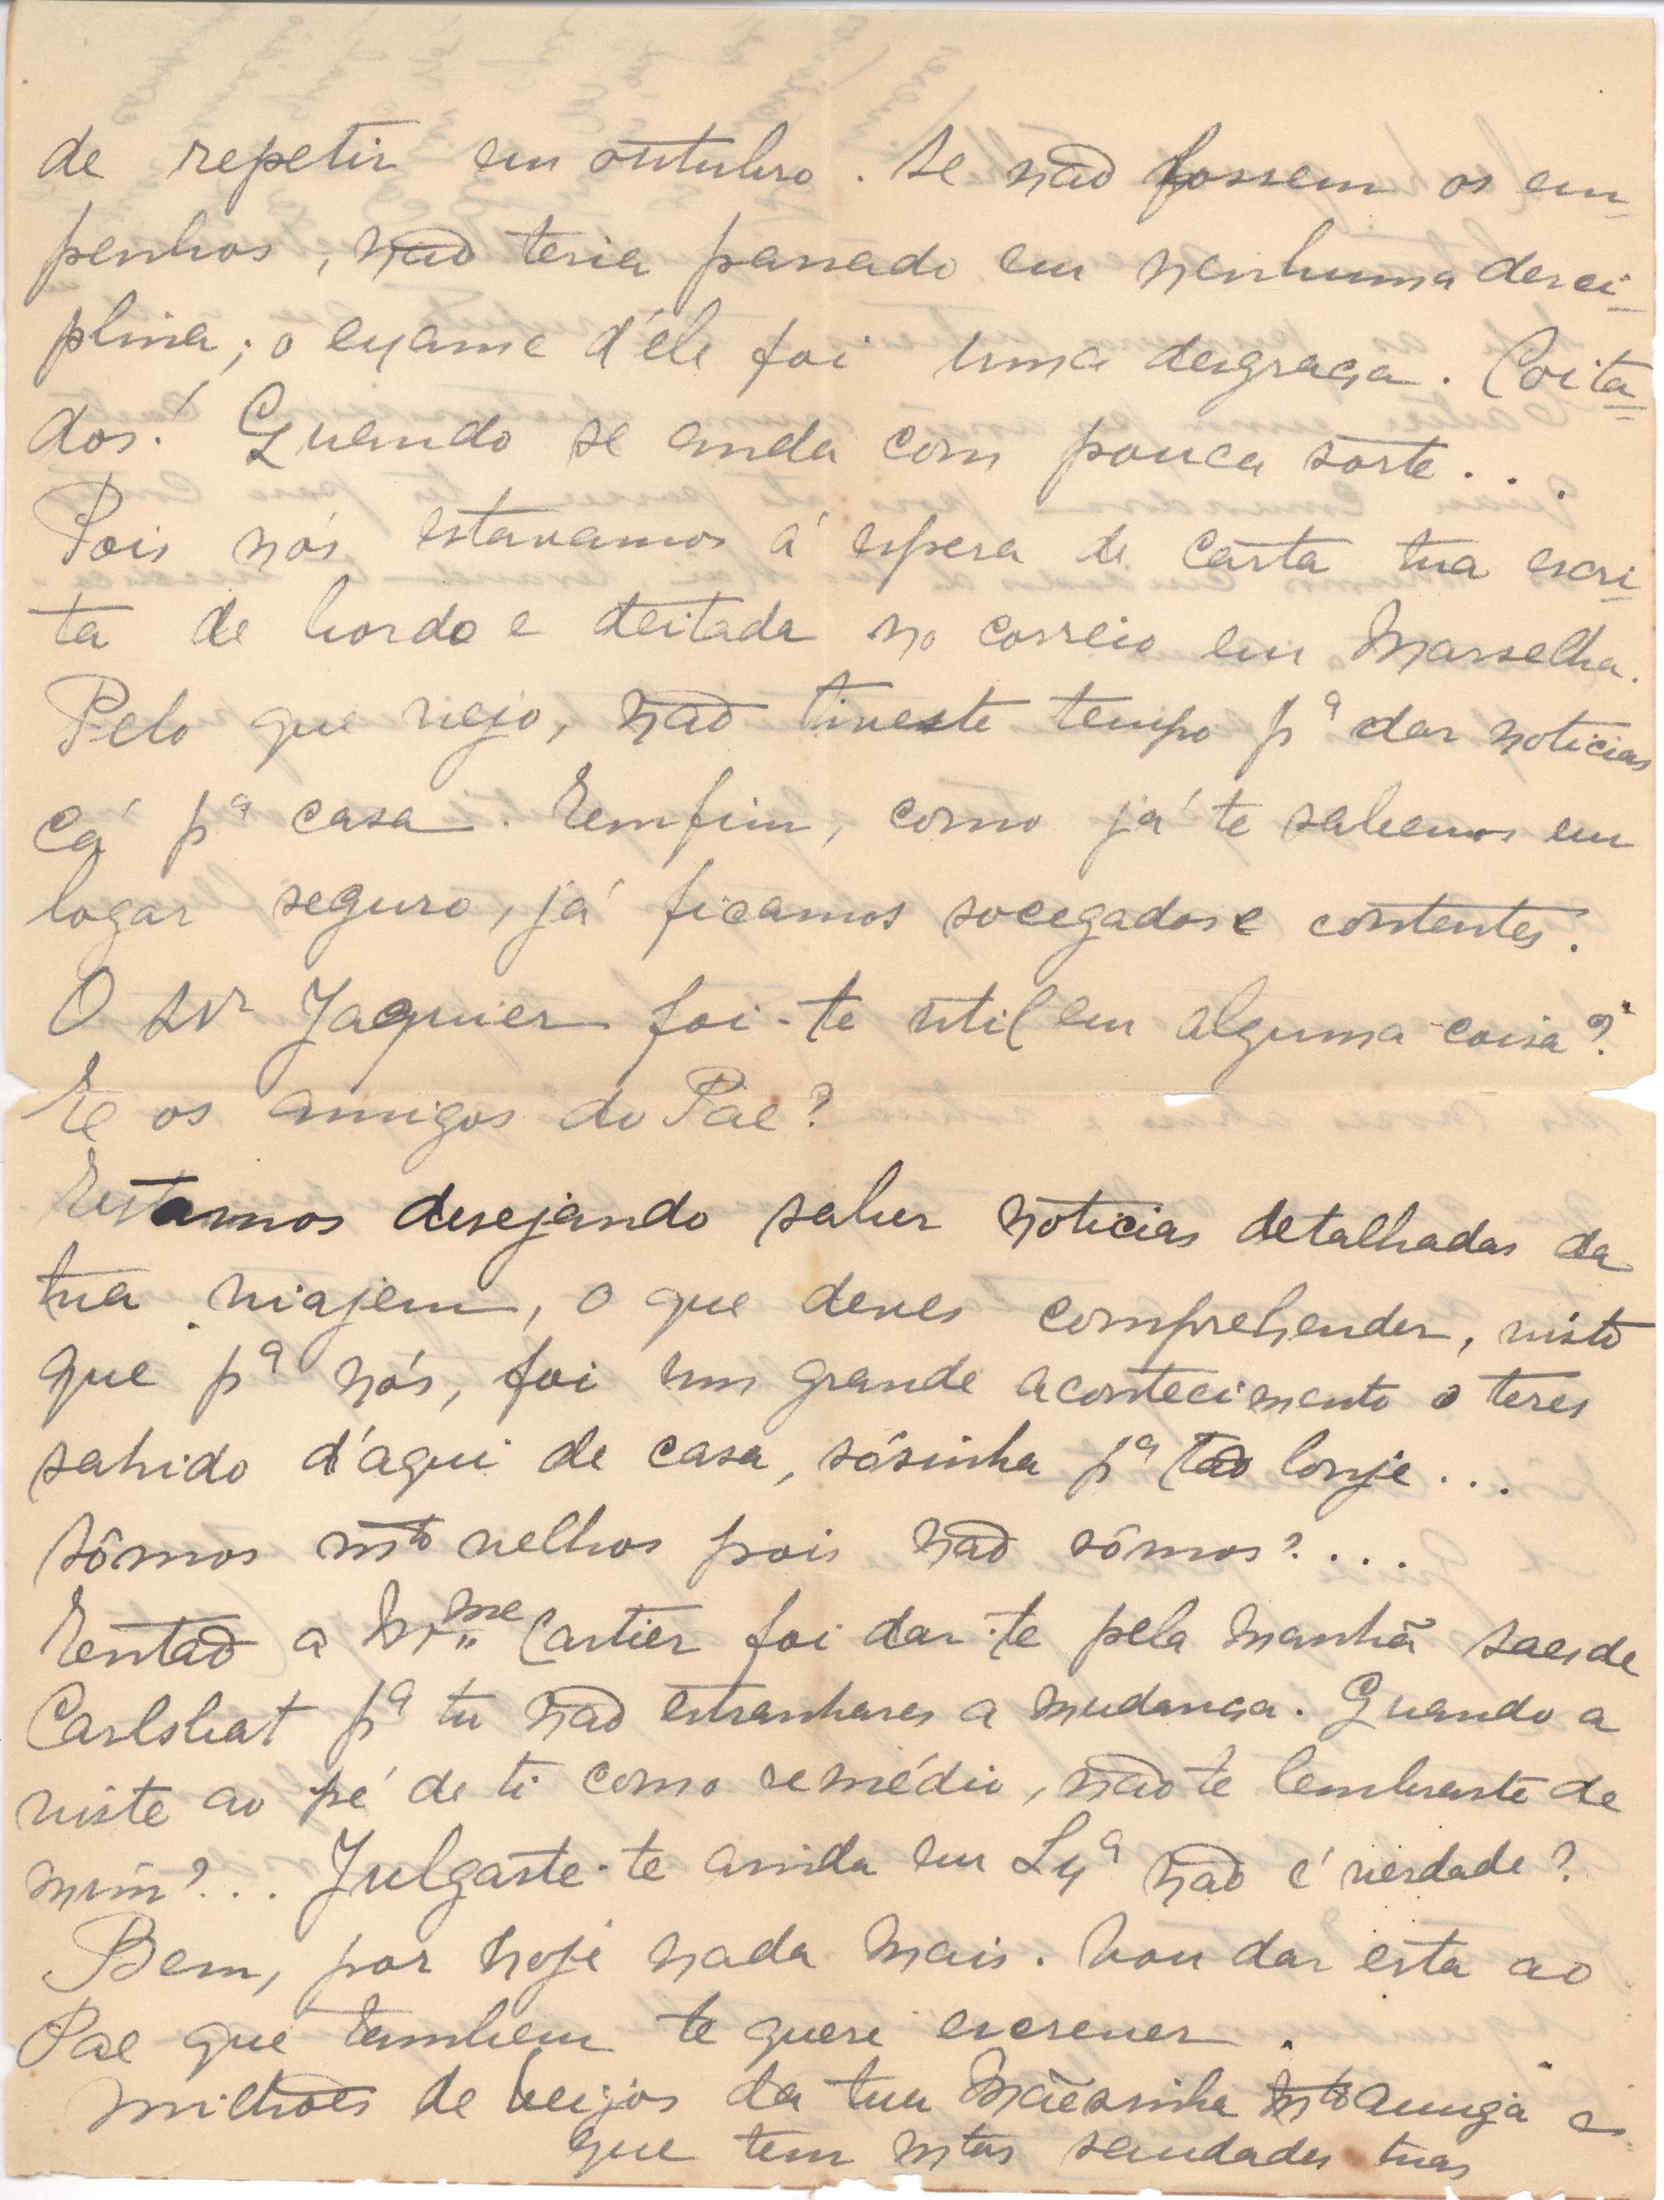 de repetir em outubro. Se não fossem os em-
penhos, não teria passado em nenhuma desci-
plina; o exame d'ele foi uma desgraça. Coita-
dos! Quando se anda com pouca sorte...
Pois nós estavamos á espera de carta tua escri-
ta de bordo e deitada no correio em Marselha.
Pelo que vejo, não tiveste tempo pª dar noticias
cá pª casa. Emfim, como já te sabemos em
logar seguro, já ficamos socegados e contentes.
O Snr Jaquier foi-te util em alguma coisa?
E os amigos do Pae?
Estamos desejando saber noticias detalhadas da
tua viajem, o que deves comprehender, visto
que pª nós, foi um grande acontecimento o teres
sahido d'aqui de casa, sósinha pª tão lonje...
Sômos mto velhos pois não sômos?....
Então a Mme Cartier foi dar-te pela manhã saes de
Carlsbat pª tu não estranhares a mudança. Quando a
viste ao pé de ti como remédio, não te lembraste de
mim?... Julgaste-te ainda em Lxª não é verdade?
Bem, por hoje nada mais. Vou dar esta ao
Pae que tambem te quere escrever.
Milhões de beijos da tua Mãesinha mto amiga e
que tem mtas saudades tuas